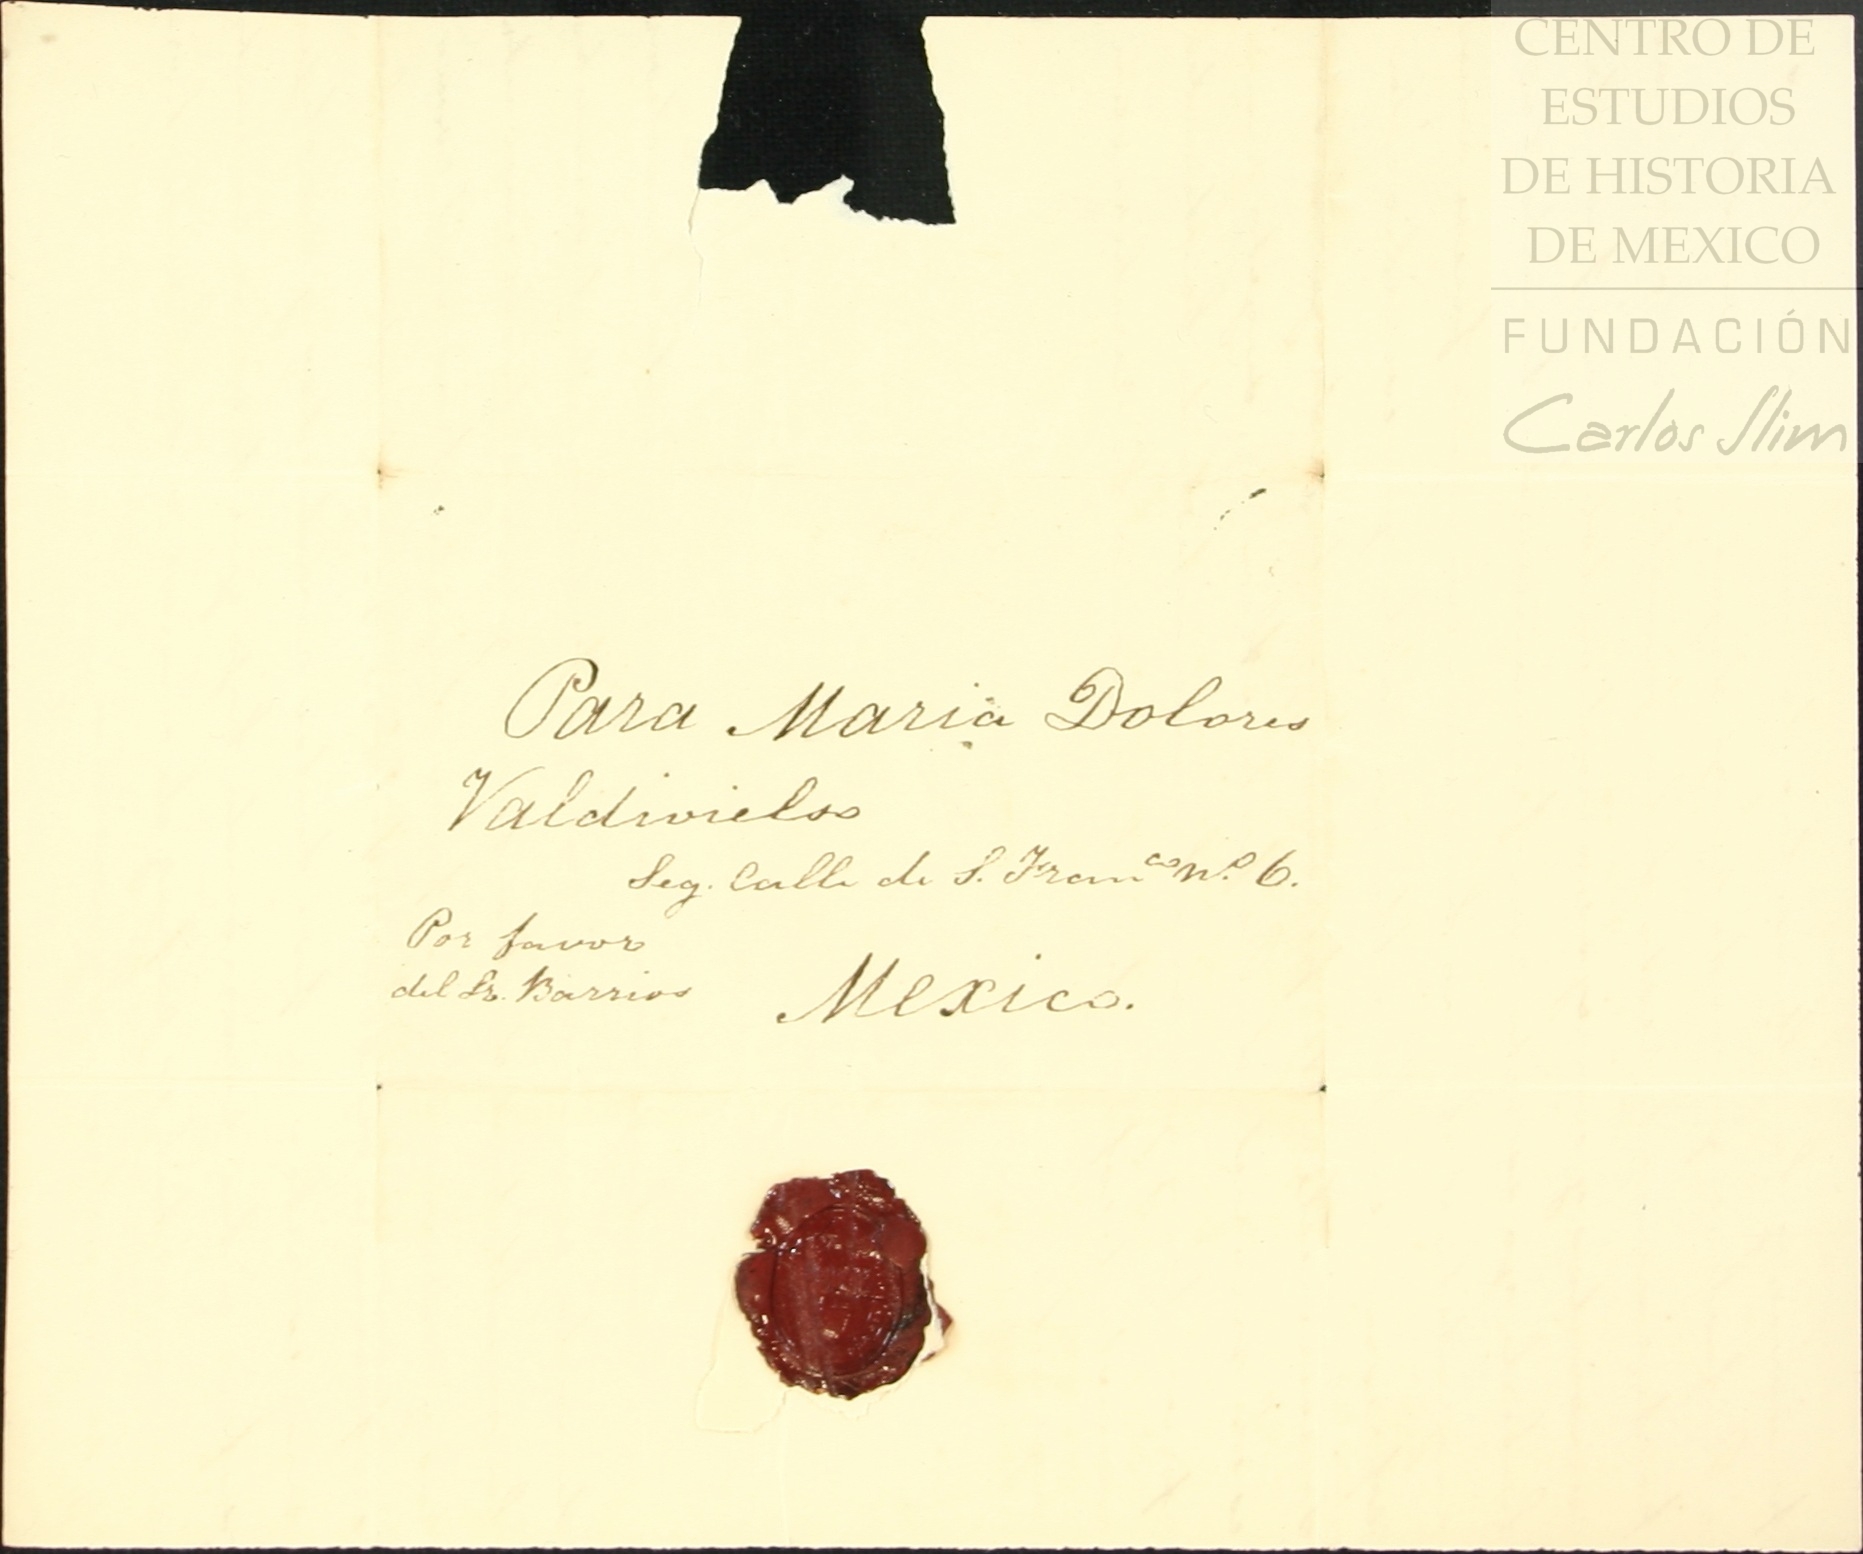 CENTRO DE
ESTUDIOS
DE HISTORIA
DE MEXICO
FUNDACIÓN
Carlos Slim
Para Maria Dolores
Valdivielso
Seg. Calle de S. Franco No. 6.
Por favor
del Sr. Barrios
Mexico.